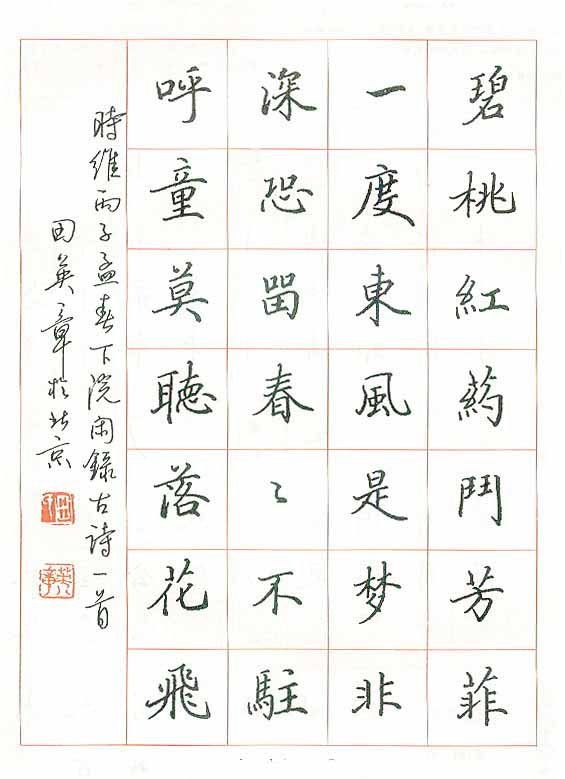 碧桃紅葯鬥芳菲
一度東風是梦非
深恐留春〻不駐
呼童莫聽落花飛
時維丙子孟春下浣閑錄古詩一首
田英章於北京
英章